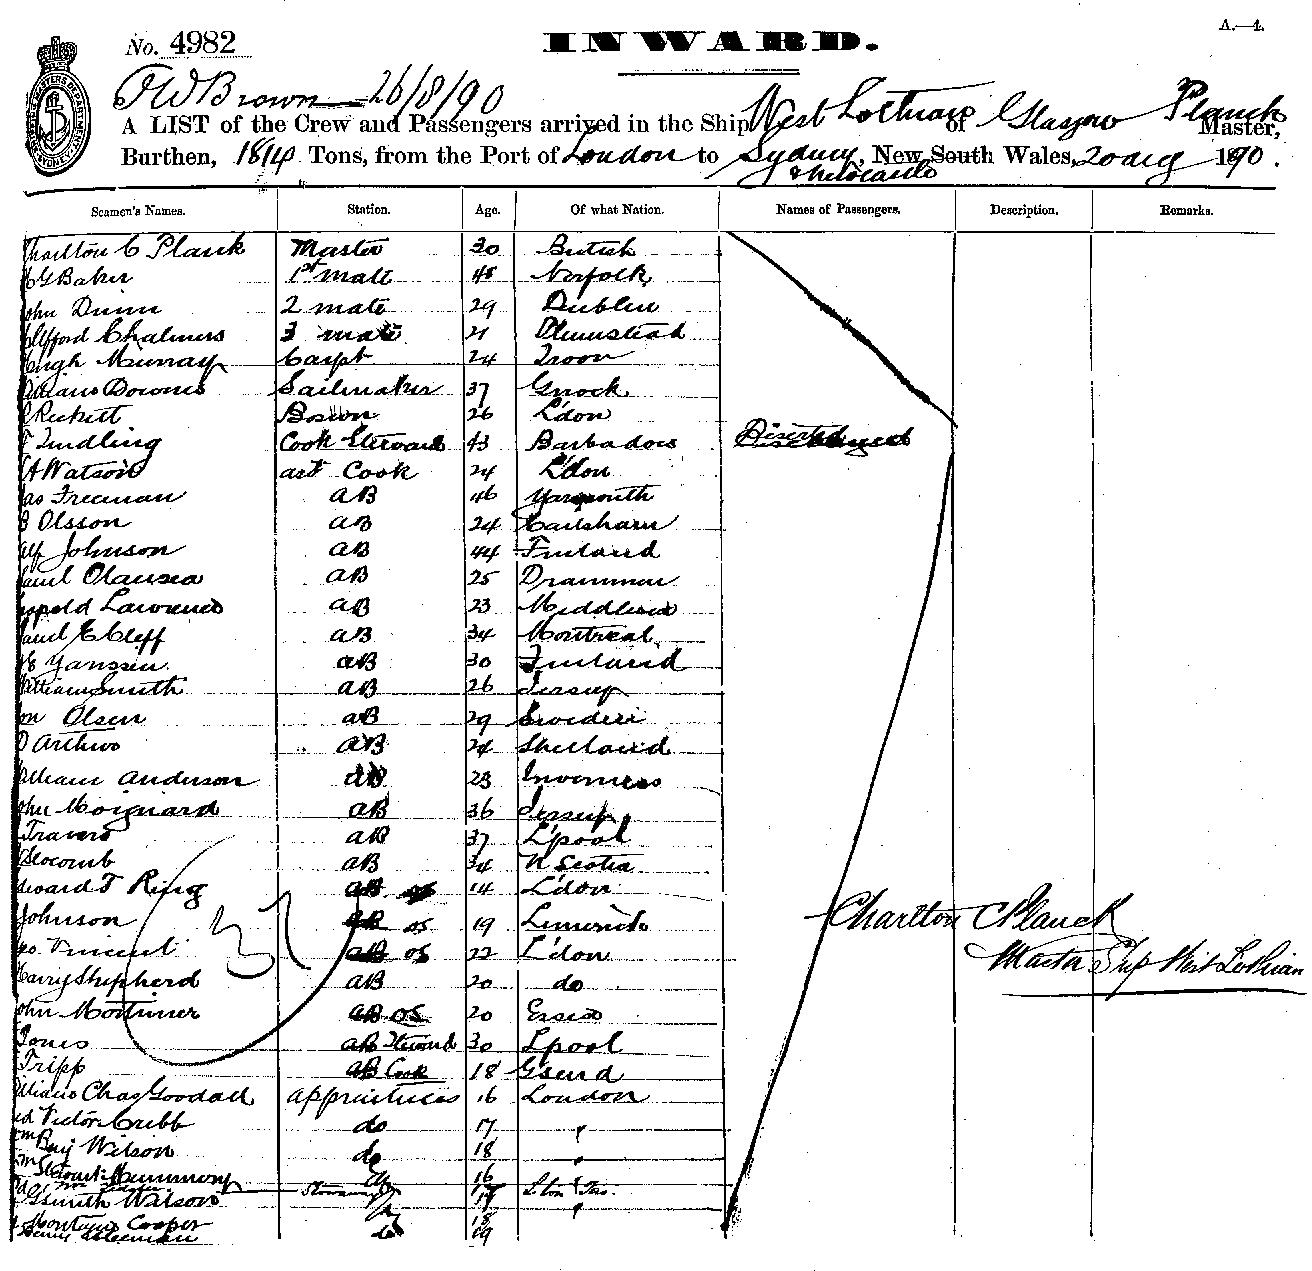 A.—4.
No. 4982
INWARD.
F W Brown 26/8/90
A LIST of the Crew and Passengers arrived in the Ship West Lothian of Glasgow Planck Master,
Burthen, 1814 Tons, from the Port of London to Sydney, New South Wales, 20 aug 1890.
& Newcastle
Seamen's Names. Station. Age. Of what Nation. Names of Passengers. Description. Remarks.
Charlton C Planck Master 30 British
G Baker 1st mate 48 Norfolk
John Dunn 2 mate 29 Dublin
Clifford Chalmers 3 mate 21 Plumstead
Hugh Murray Carpt 24 Troon
Downes Sailmaker 37 Gnock
Rickett Bosun 26 L'don
Quidling Cook Steward 43 Barbados
A Watson ast Cook 24 L'don
Jas Freeman aB 46 Yarmouth
B Olsson aB 24 Hailsham
Alf Johnson aB 44 Finland
Olausea aB 25 Drammen
Leopold Lawrence aB 23 Middlesex
E Cleff aB 34 Montreal
Yanssen aB 30 Finland
William Smith aB 26 Jersey
Olsen aB 29 Sweden
Arthus aB 24 Shetland
William Anderson aB 23 Inverness
John Moignard aB 36 Jersey
Travers aB 37 L'pool
Slocomb aB 34 N Scotia
Edward T Ring aB os 14 L'don
Johnson aB os 19 Limerick
Geo. Vincent aB os 22 L'don
Harry Shepherd aB 20 do
John Mortimer aB os 20 Essex
Jones aB Steward 30 Lpool
Tripp aB Cook 18 G'send
William Chas Goodall apprentices 16 London
Victor Cribb do 17 "
Wilson do 18 "
Stewart Hummong do 16
Smith Wilson 17 "
Montague Cooper 18
Henry do 19
Charlton C Planck
Master Ship West Lothian